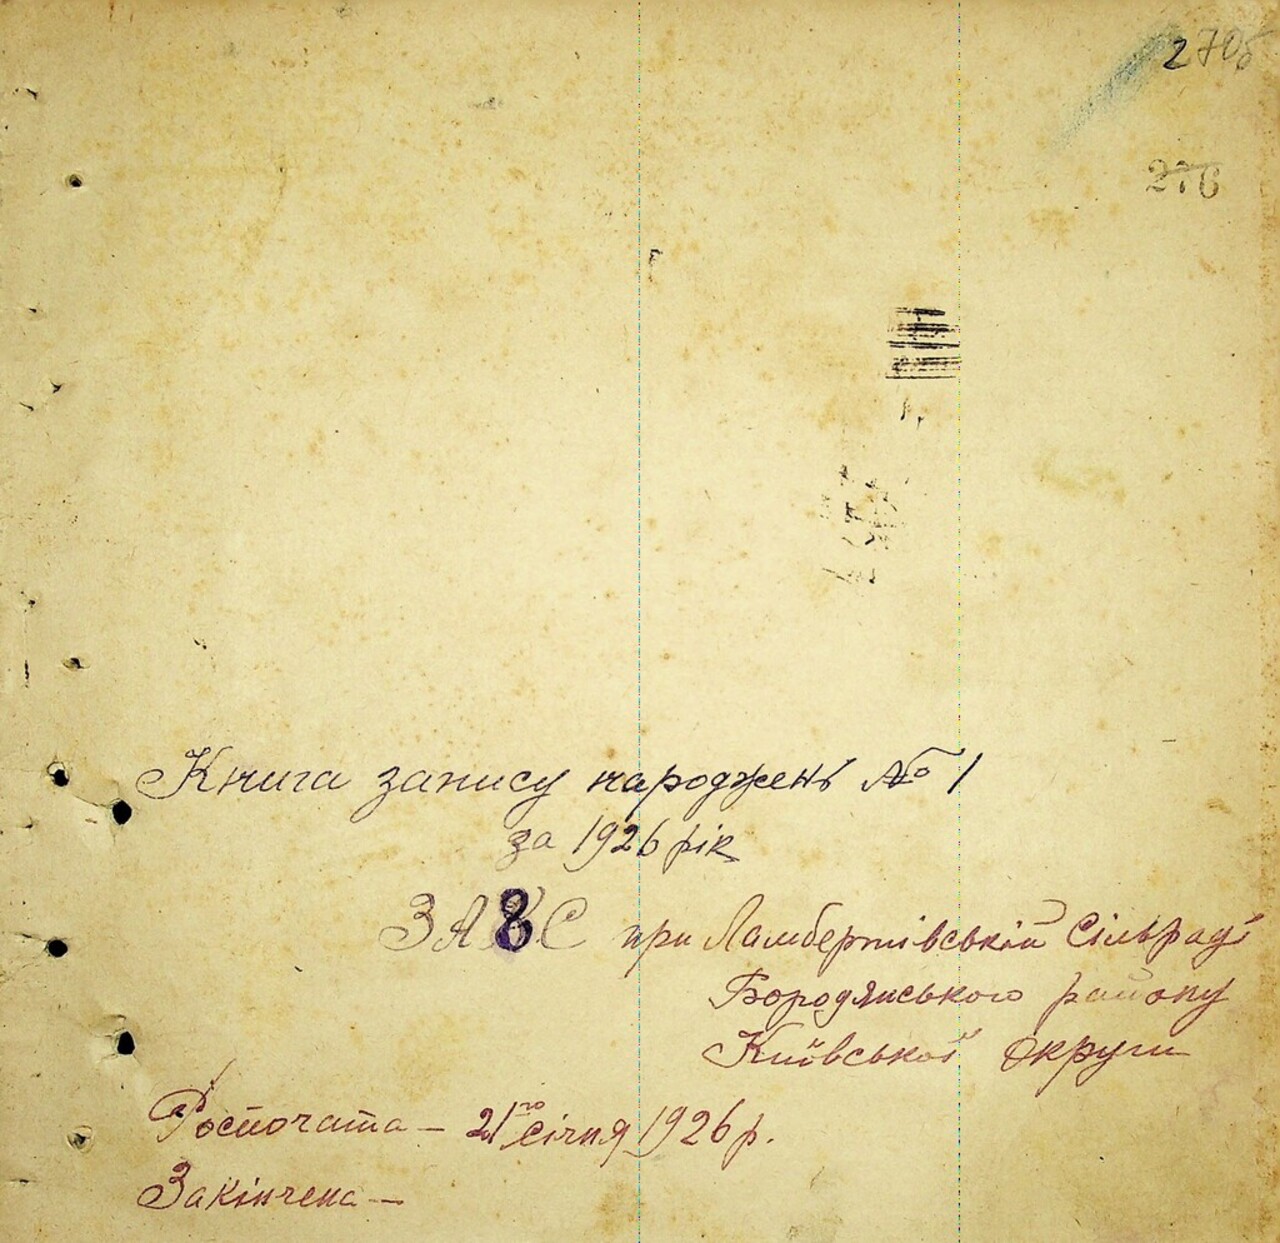 270б
276
Книга запису народжень № 1
за 1926 рік
ЗАГС при Ламбертівській Сільраді
8
Бородянського району
Київської округи
Роспочата — 21го січня 1926 р.
Закінчена —